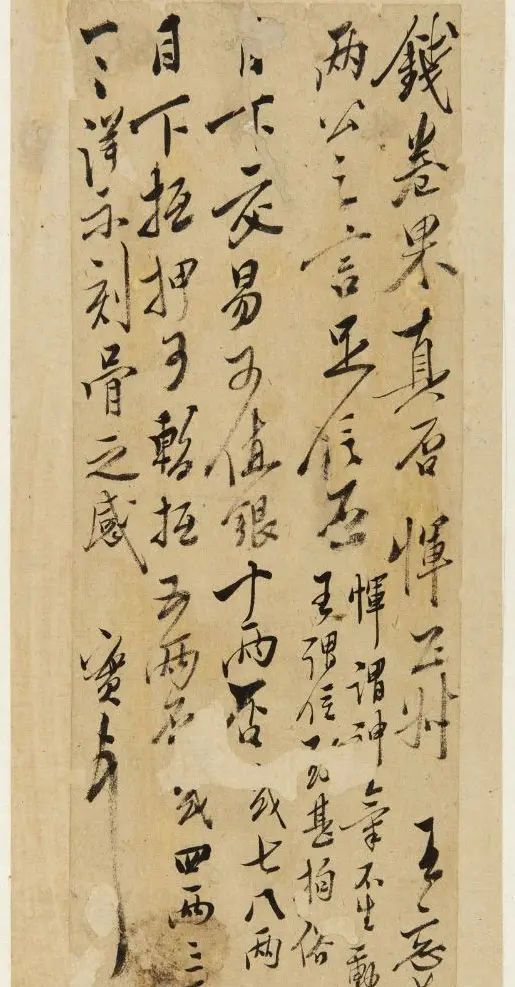 錢卷果真否 惲正叔 王忘
兩公之言足信否
惲謂神氣不生動
王謂信 甚拍俗
目下交易可值銀十兩否 或七八兩
目下抵押可暫抵五兩否 或四兩三
一一得示刻骨之感 寶